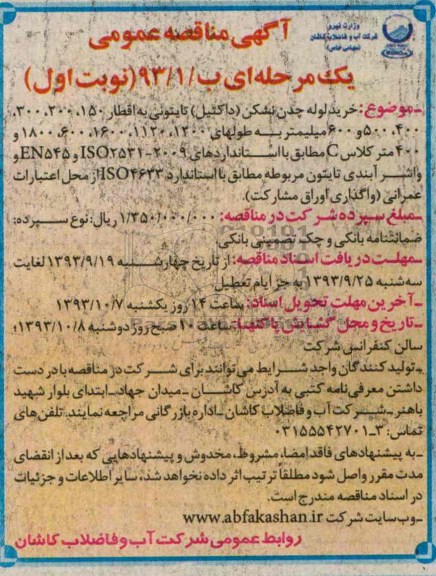 وزارت نیرو
شرکت آب و فاضلاب کاشان
(سهامی خاص)
آگهی مناقصه عمومی
یک مرحله‌ای ب/۹۳/۱ (نوبت اول)
ـ موضوع: خرید لوله چدن نشکن (داکتیل) تایتونی به اقطار ۱۵۰، ۲۰۰، ۳۰۰،
۴۰۰، ۵۰۰ و ۶۰۰ میلیمتر به طولهای ۱۲۰۰، ۱۱۲۰، ۱۶۰۰، ۶۰۰، ۱۸۰۰ و
۴۰۰ متر کلاس C مطابق با استانداردهای ISO۲۵۳۱-۲۰۰۹ و EN۵۴۵ و
واشر آببندی تایتون مربوطه مطابق با استاندارد ISO۴۶۳۳ از محل اعتبارات
عمرانی (واگذاری اوراق مشارکت).
ـ مبلغ سپرده شرکت در مناقصه: ۱/۳۵۰/۰۰۰/۰۰۰ ریال: نوع سپرده:
ضمانتنامه بانکی و چک تضمینی بانکی
ـ مهلت دریافت اسناد مناقصه: از تاریخ چهارشنبه ۱۳۹۳/۹/۱۹ لغایت
سه‌شنبه ۱۳۹۳/۹/۲۵ به جز ایام تعطیل
ـ آخرین مهلت تحویل اسناد: ساعت ۱۴ روز یکشنبه ۱۳۹۳/۱۰/۷
ـ تاریخ و محل گشایش پاکتها: ساعت ۱۰ صبح روز دوشنبه ۱۳۹۳/۱۰/۸؛
سالن کنفرانس شرکت
ـ تولیدکنندگان واجد شرایط می‌توانند برای شرکت در مناقصه با در دست
داشتن معرفی‌نامه کتبی به آدرس کاشان ـ میدان جهاد ـ ابتدای بلوار شهید
باهنر ـ شرکت آب و فاضلاب کاشان ـ اداره بازرگانی مراجعه نمایند. تلفن‌های
تماس: ۳ـ۰۳۱۵۵۵۴۲۷۰۱
ـ به پیشنهادهای فاقد امضاء، مشروط، مخدوش و پیشنهادهایی که بعد از انقضای
مدت مقرر واصل شود مطلقاً ترتیب اثر داده نخواهد شد، سایر اطلاعات و جزئیات
در اسناد مناقصه مندرج است.
ـ وب سایت شرکت www.abfakashan.ir
روابط عمومی شرکت آب و فاضلاب کاشان